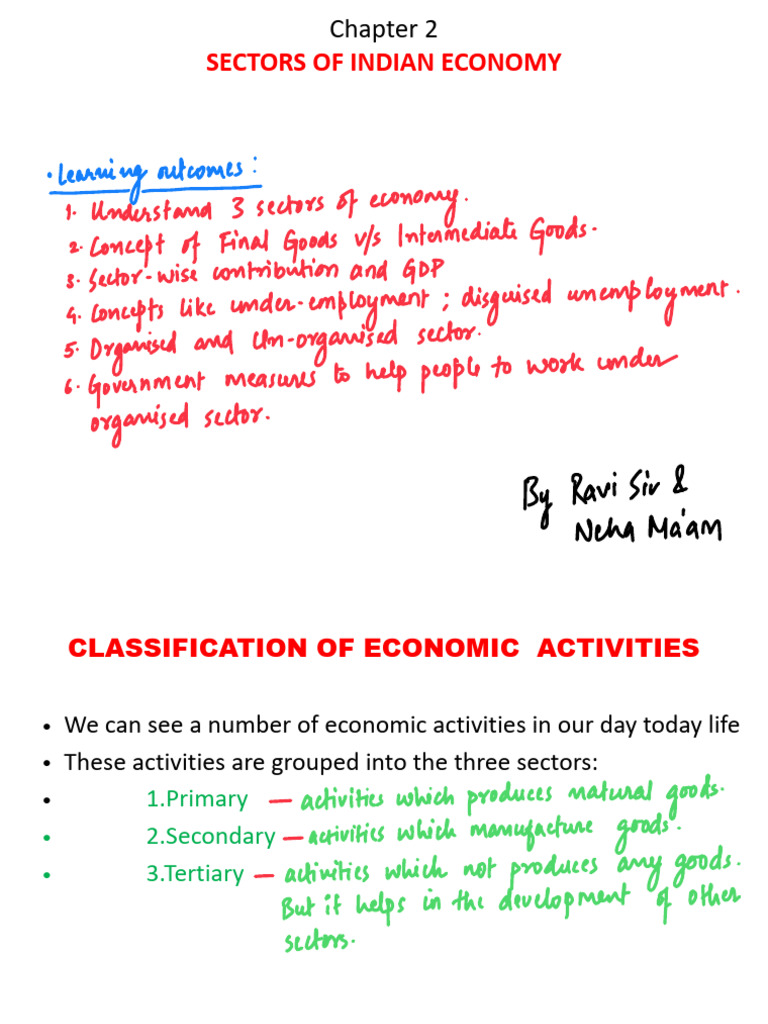 Chapter 2
SECTORS OF INDIAN ECONOMY
• Learning outcomes:
1. Understand 3 sectors of economy.
2. Concept of Final Goods v/s Intermediate Goods.
3. Sector-wise contribution and GDP
4. Concepts like under-employment ; disguised unemployment.
5. Organised and Un-organised sector.
6. Government measures to help people to work under
organised sector.
By Ravi Sir &
Neha Ma'am
CLASSIFICATION OF ECONOMIC ACTIVITIES
• We can see a number of economic activities in our day today life
• These activities are grouped into the three sectors:
• 1.Primary — activities which produces natural goods.
• 2.Secondary — activities which manufacture goods.
• 3.Tertiary — activities which not produces any goods.
But it helps in the development of other
sectors.